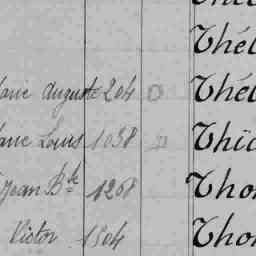 Thél
arie Auguste 204 Thél
arie Louis 1038 Thié
Jean Bte 1268 Tho
Victor 1504 Tho